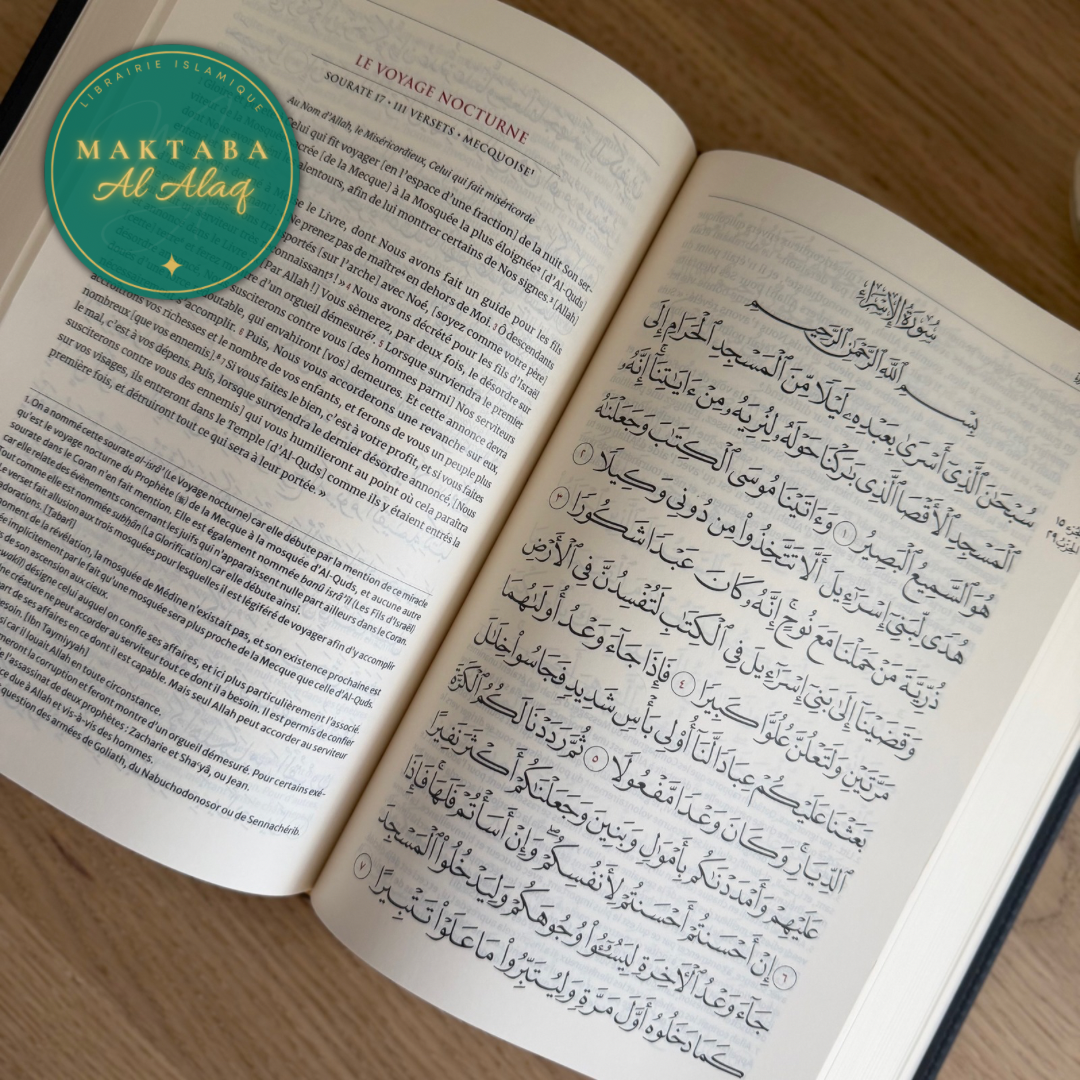 LIBRAIRIE ISLAMIQUE
MAKTABA
Al Alaq
LE VOYAGE NOCTURNE
SOURATE 17 • 111 VERSETS • MECQUOISE¹
Au Nom d'Allah, le Miséricordieux, Celui qui fait miséricorde
Celui qui fit voyager [en l'espace d'une fraction] de la nuit Son ser-
[de la Mecque] à la Mosquée la plus éloignée² [d'Al-Quds]
alentours, afin de lui montrer certains de Nos signes.³ [Allah]
le Livre, dont Nous avons fait un guide pour les fils
Ne prenez pas de maître⁴ en dehors de Moi. 3 Ô descendants
[sur l'arche] avec Noé, [soyez comme votre père]
! » 4 Nous avons décrété pour les fils d'Israël
[Par Allah !] Vous sèmerez, par deux fois, le désordre sur
d'un orgueil démesuré⁷. 5 Lorsque surviendra le premier
susciterons contre vous [des hommes parmi] Nos serviteurs
qui envahiront [vos] demeures. Et cette annonce devra
accomplir. 6 Puis, Nous vous accorderons une revanche sur eux,
accroîtrons vos richesses et le nombre de vos enfants, et ferons de vous un peuple plus
nombreux [que vos ennemis]. 7 Si vous faites le bien, c'est à votre profit, et si vous faites
le mal, c'est à vos dépens. Puis, lorsque surviendra le dernier désordre annoncé, [Nous
susciterons contre vous des ennemis] qui vous humilieront au point où cela paraîtra
sur vos visages, ils entreront dans le Temple [d'Al-Quds] comme ils y étaient entrés la
première fois, et détruiront tout ce qui sera à leur portée. »
1. On a nommé cette sourate al-isrâ' (Le Voyage nocturne) car elle débute par la mention de ce miracle
qu'est le voyage nocturne du Prophète (ﷺ) de la Mecque à la mosquée d'Al-Quds, et aucune autre
sourate dans le Coran n'en fait mention. Elle est également nommée banû isrâ'îl (Les Fils d'Israël)
car elle relate des évènements concernant les Juifs qui n'apparaissent nulle part ailleurs dans le Coran.
Tout comme elle est nommée subhân (La Glorification) car elle débute ainsi.
verset fait allusion aux trois mosquées pour lesquelles il est légiféré de voyager afin d'y accomplir
adorations. [Tabarî]
moment de la révélation, la mosquée de Médine n'existait pas, et son existence prochaine est
implicitement par le fait qu'une mosquée sera plus proche de la Mecque que celle d'Al-Quds.
de son ascension aux cieux.
désigne celui auquel on confie ses affaires, et ici plus particulièrement l'associé.
créature ne peut accorder au serviteur tout ce dont il a besoin. Il est permis de confier
de ses affaires en ce dont il est capable. Mais seul Allah peut accorder au serviteur
besoin. [Ibn Taymiyyah]
car il louait Allah en toute circonstance.
la corruption et feront montre d'un orgueil démesuré. Pour certains exé-
l'assassinat de deux prophètes : Zacharie et Sha'yâ, ou Jean.
due à Allah et vis-à-vis des hommes.
question des armées de Goliath, du Nabuchodonosor ou de Sennachérib.
سُورَةُ الإِسْرَاءِ
بِسْمِ ٱللَّهِ ٱلرَّحْمَٰنِ ٱلرَّحِيمِ
سُبْحَٰنَ ٱلَّذِىٓ أَسْرَىٰ بِعَبْدِهِۦ لَيْلًا مِّنَ ٱلْمَسْجِدِ ٱلْحَرَامِ إِلَى
ٱلْمَسْجِدِ ٱلْأَقْصَا ٱلَّذِى بَٰرَكْنَا حَوْلَهُۥ لِنُرِيَهُۥ مِنْ ءَايَٰتِنَآ إِنَّهُۥ
هُوَ ٱلسَّمِيعُ ٱلْبَصِيرُ ١ وَءَاتَيْنَا مُوسَى ٱلْكِتَٰبَ وَجَعَلْنَٰهُ
هُدًى لِّبَنِىٓ إِسْرَٰٓءِيلَ أَلَّا تَتَّخِذُوا۟ مِن دُونِى وَكِيلًا ٢
ذُرِّيَّةَ مَنْ حَمَلْنَا مَعَ نُوحٍ إِنَّهُۥ كَانَ عَبْدًا شَكُورًا ٣
وَقَضَيْنَآ إِلَىٰ بَنِىٓ إِسْرَٰٓءِيلَ فِى ٱلْكِتَٰبِ لَتُفْسِدُنَّ فِى ٱلْأَرْضِ
مَرَّتَيْنِ وَلَتَعْلُنَّ عُلُوًّا كَبِيرًا ٤ فَإِذَا جَآءَ وَعْدُ أُولَىٰهُمَا
بَعَثْنَا عَلَيْكُمْ عِبَادًا لَّنَآ أُو۟لِى بَأْسٍ شَدِيدٍ فَجَاسُوا۟ خِلَٰلَ
ٱلدِّيَارِ وَكَانَ وَعْدًا مَّفْعُولًا ٥ ثُمَّ رَدَدْنَا لَكُمُ ٱلْكَرَّةَ
عَلَيْهِمْ وَأَمْدَدْنَٰكُم بِأَمْوَٰلٍ وَبَنِينَ وَجَعَلْنَٰكُمْ أَكْثَرَ نَفِيرًا
٦ إِنْ أَحْسَنتُمْ أَحْسَنتُمْ لِأَنفُسِكُمْ وَإِنْ أَسَأْتُمْ فَلَهَا فَإِذَا
جَآءَ وَعْدُ ٱلْءَاخِرَةِ لِيَسُۥٓـُٔوا۟ وُجُوهَكُمْ وَلِيَدْخُلُوا۟ ٱلْمَسْجِدَ
كَمَا دَخَلُوهُ أَوَّلَ مَرَّةٍ وَلِيُتَبِّرُوا۟ مَا عَلَوْا۟ تَتْبِيرًا ٧